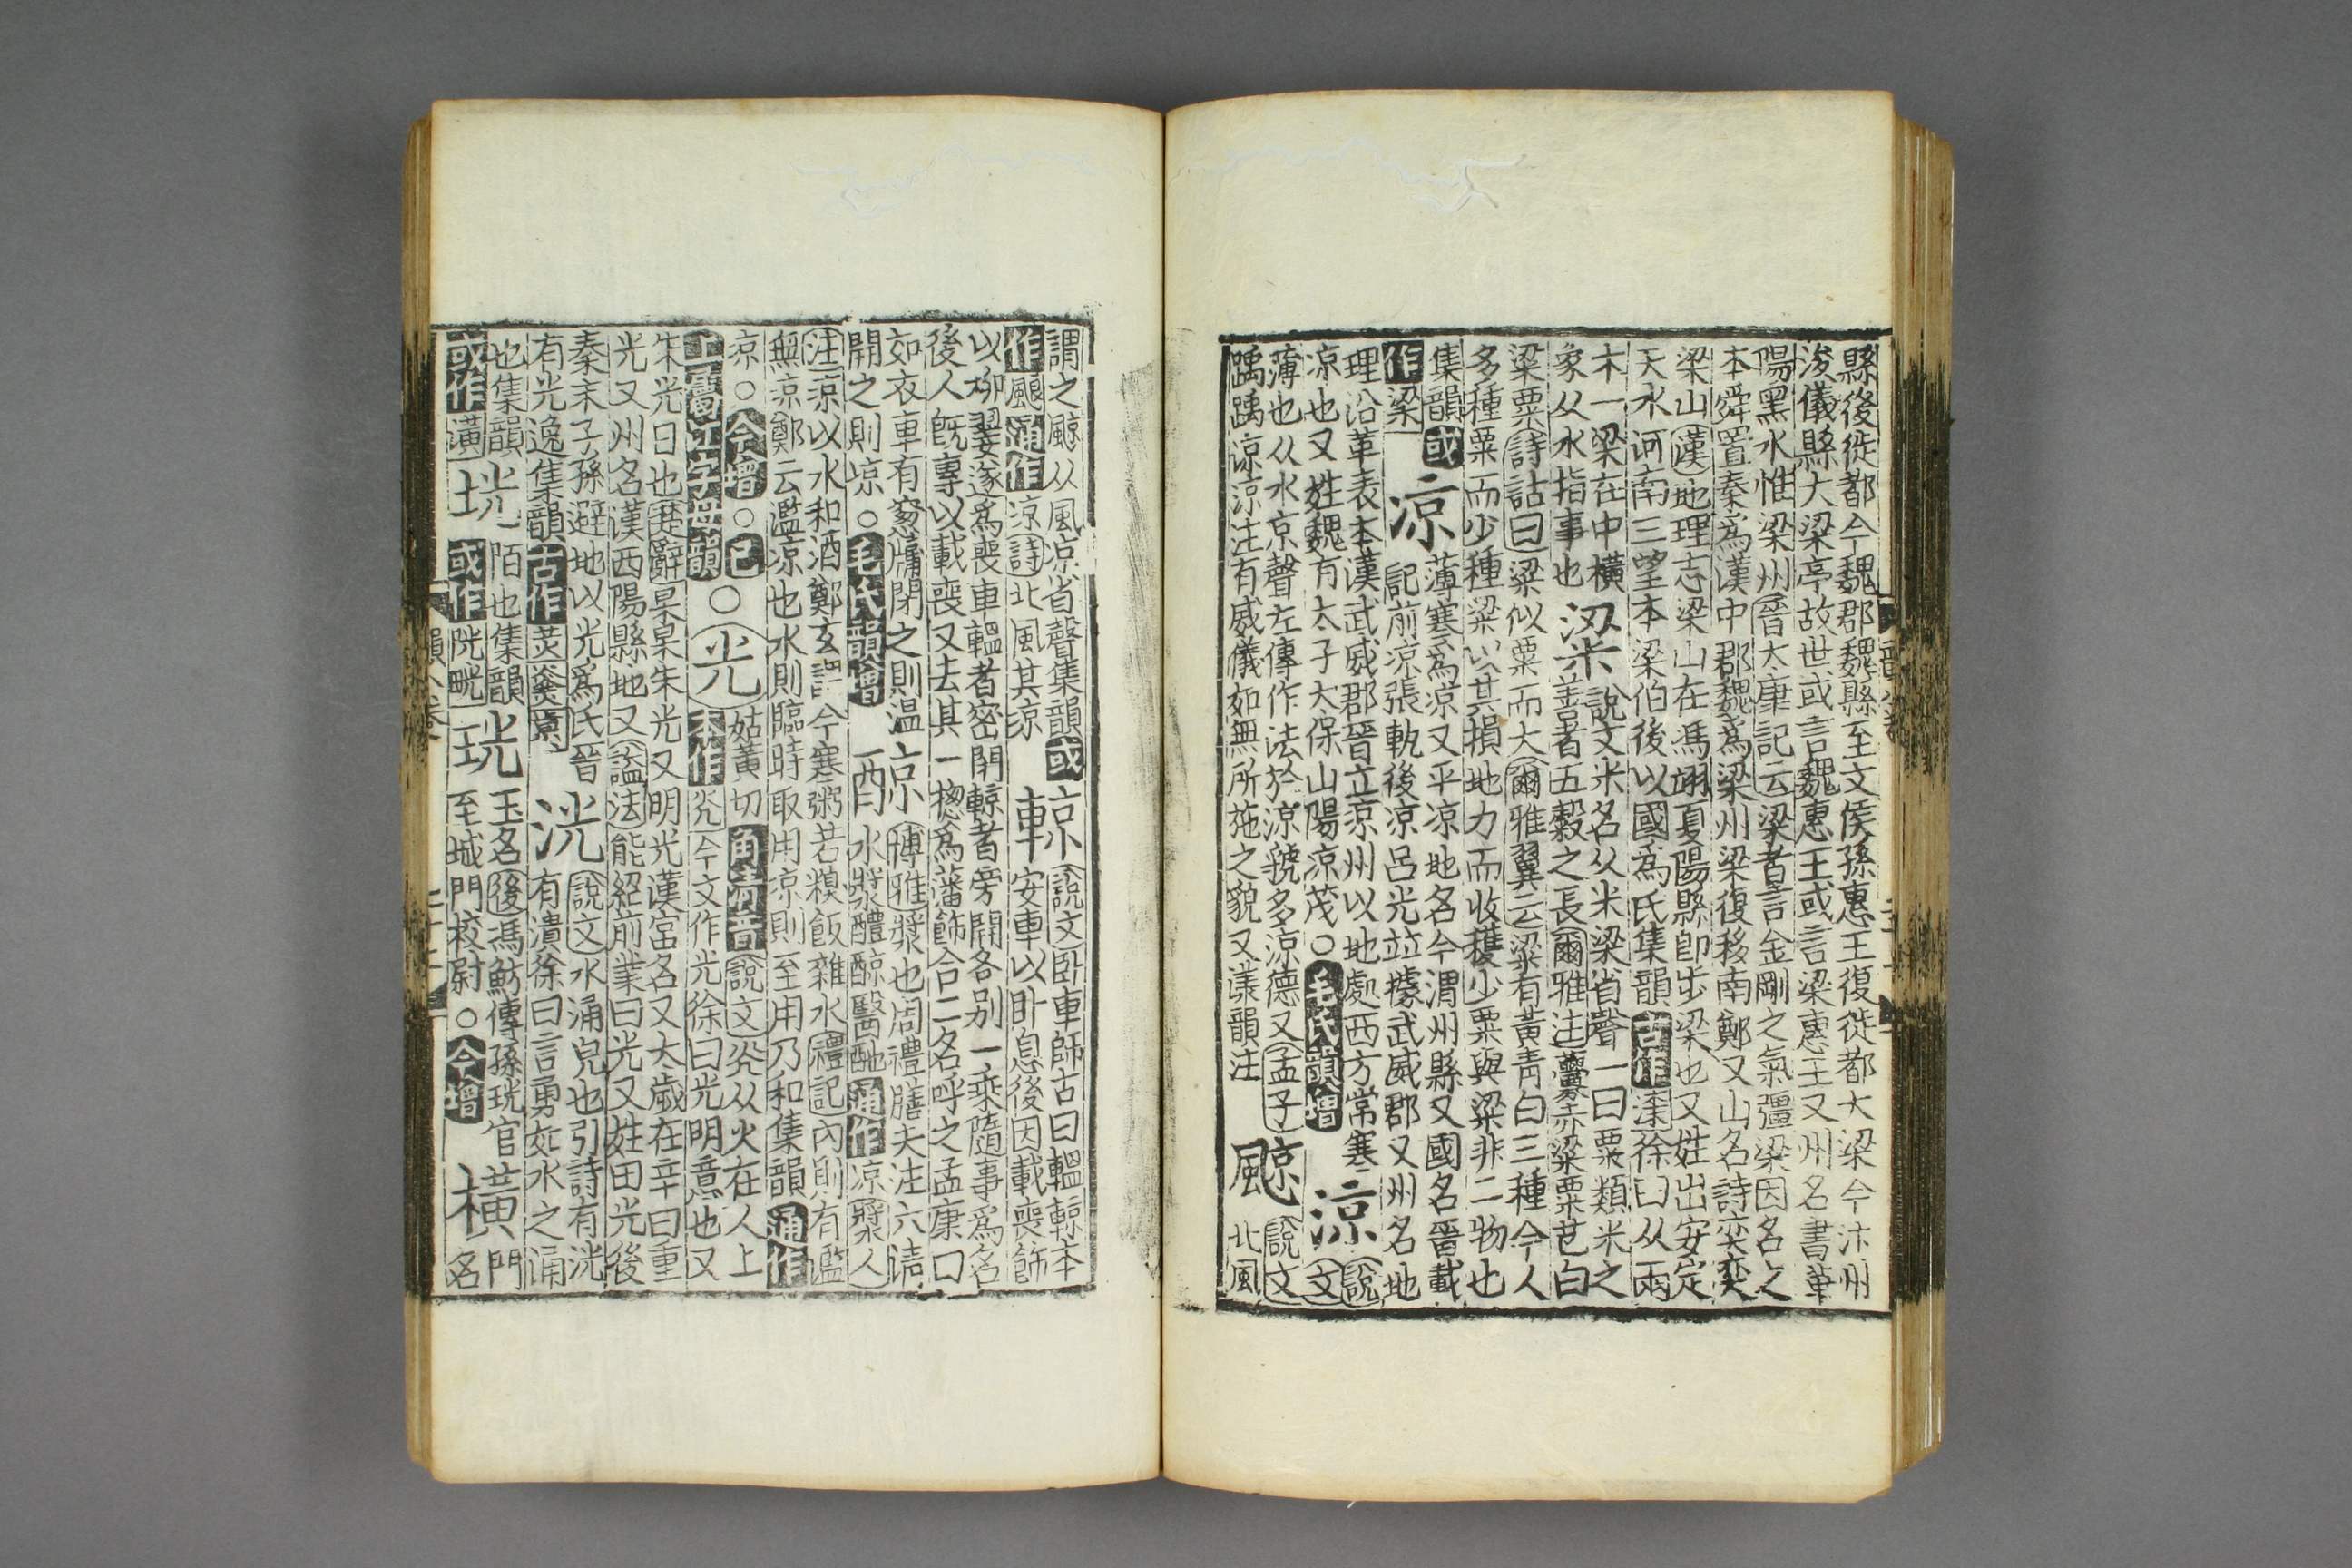 縣後徙都今魏郡魏縣至文侯孫惠王復徙都大梁今汴州
浚儀縣大梁亭故世或言魏惠王或言梁惠王又州名書華
陽黑水惟梁州晉太康記云梁者言金剛之氣彊梁因名之
本舜置秦爲漢中郡魏爲梁州梁復移南鄭又山名詩奕奕
梁山漢地理志梁山在馮翊夏陽縣卽步梁也又姓出安定
天水河南三望本梁伯後以國爲氏集韻古作渿徐曰从兩
木一梁在中橫
象从水指事也
粱
說文米名从米梁省聲一曰粟類米之
善者五穀之長爾雅注虋赤粱粟芑白
粱粟詩詁曰粱似粟而大爾雅翼云粱有黃青白三種今人
多種粟而少種粱以其損地力而收穫少粟與粱非二物也
集韻或
作梁
凉
薄寒爲凉又平凉地名今渭州縣又國名晉載
記前凉張軌後凉呂光並據武威郡又州名地
理沿革表本漢武威郡晉立凉州以地處西方常寒
凉也又姓魏有太子太保山陽凉茂○毛氏韻增
涼
說
文
薄也从水京聲左傳作法於涼虢多涼德又孟子
踽踽涼涼注有威儀如無所施之貌又漾韻注
飉
說文
北風
謂之飉从風凉省聲集韻或
作飉通作凉詩北風其凉
輬
說文臥車師古曰轀輬本
安車以臥息後因載喪飾
以柳翣遂爲喪車轀者密閉輬者旁開各別一乘隨事爲名
後人旣專以載喪又去其一揔爲藩飾合二名呼之孟康曰
如衣車有窻牖閉之則温
開之則凉○毛氏韻增
䣼
博雅漿也周禮膳夫注六清
水漿醴䣼醫酏通作凉漿人
注凉以水和酒鄭玄謂今寒粥若糗飯雜水禮記內則有濫
無凉鄭云濫凉也水則臨時取用凉則至用乃和集韻通作
凉○今增○已
上屬江字母韻
○光
姑黃切角淸音說文灮从火在人上
本作灮今文作光徐曰光明意也又
朱光日也楚辭杲杲朱光又明光漢宮名又太歲在辛曰重
光又州名漢西陽縣地又謚法能紹前業曰光又姓田光後
秦末子孫避地以光爲氏晉
有光逸集韻古作炗㷗𤉭
洸
說文水涌皃也引詩有洸
有潰徐曰言勇如水之涌
也集韻
或作潢
垙
陌也集韻
或作㫕㽘
珖
玉名後馮魴傳孫珖官
至城門校尉○今增
橫
門
名